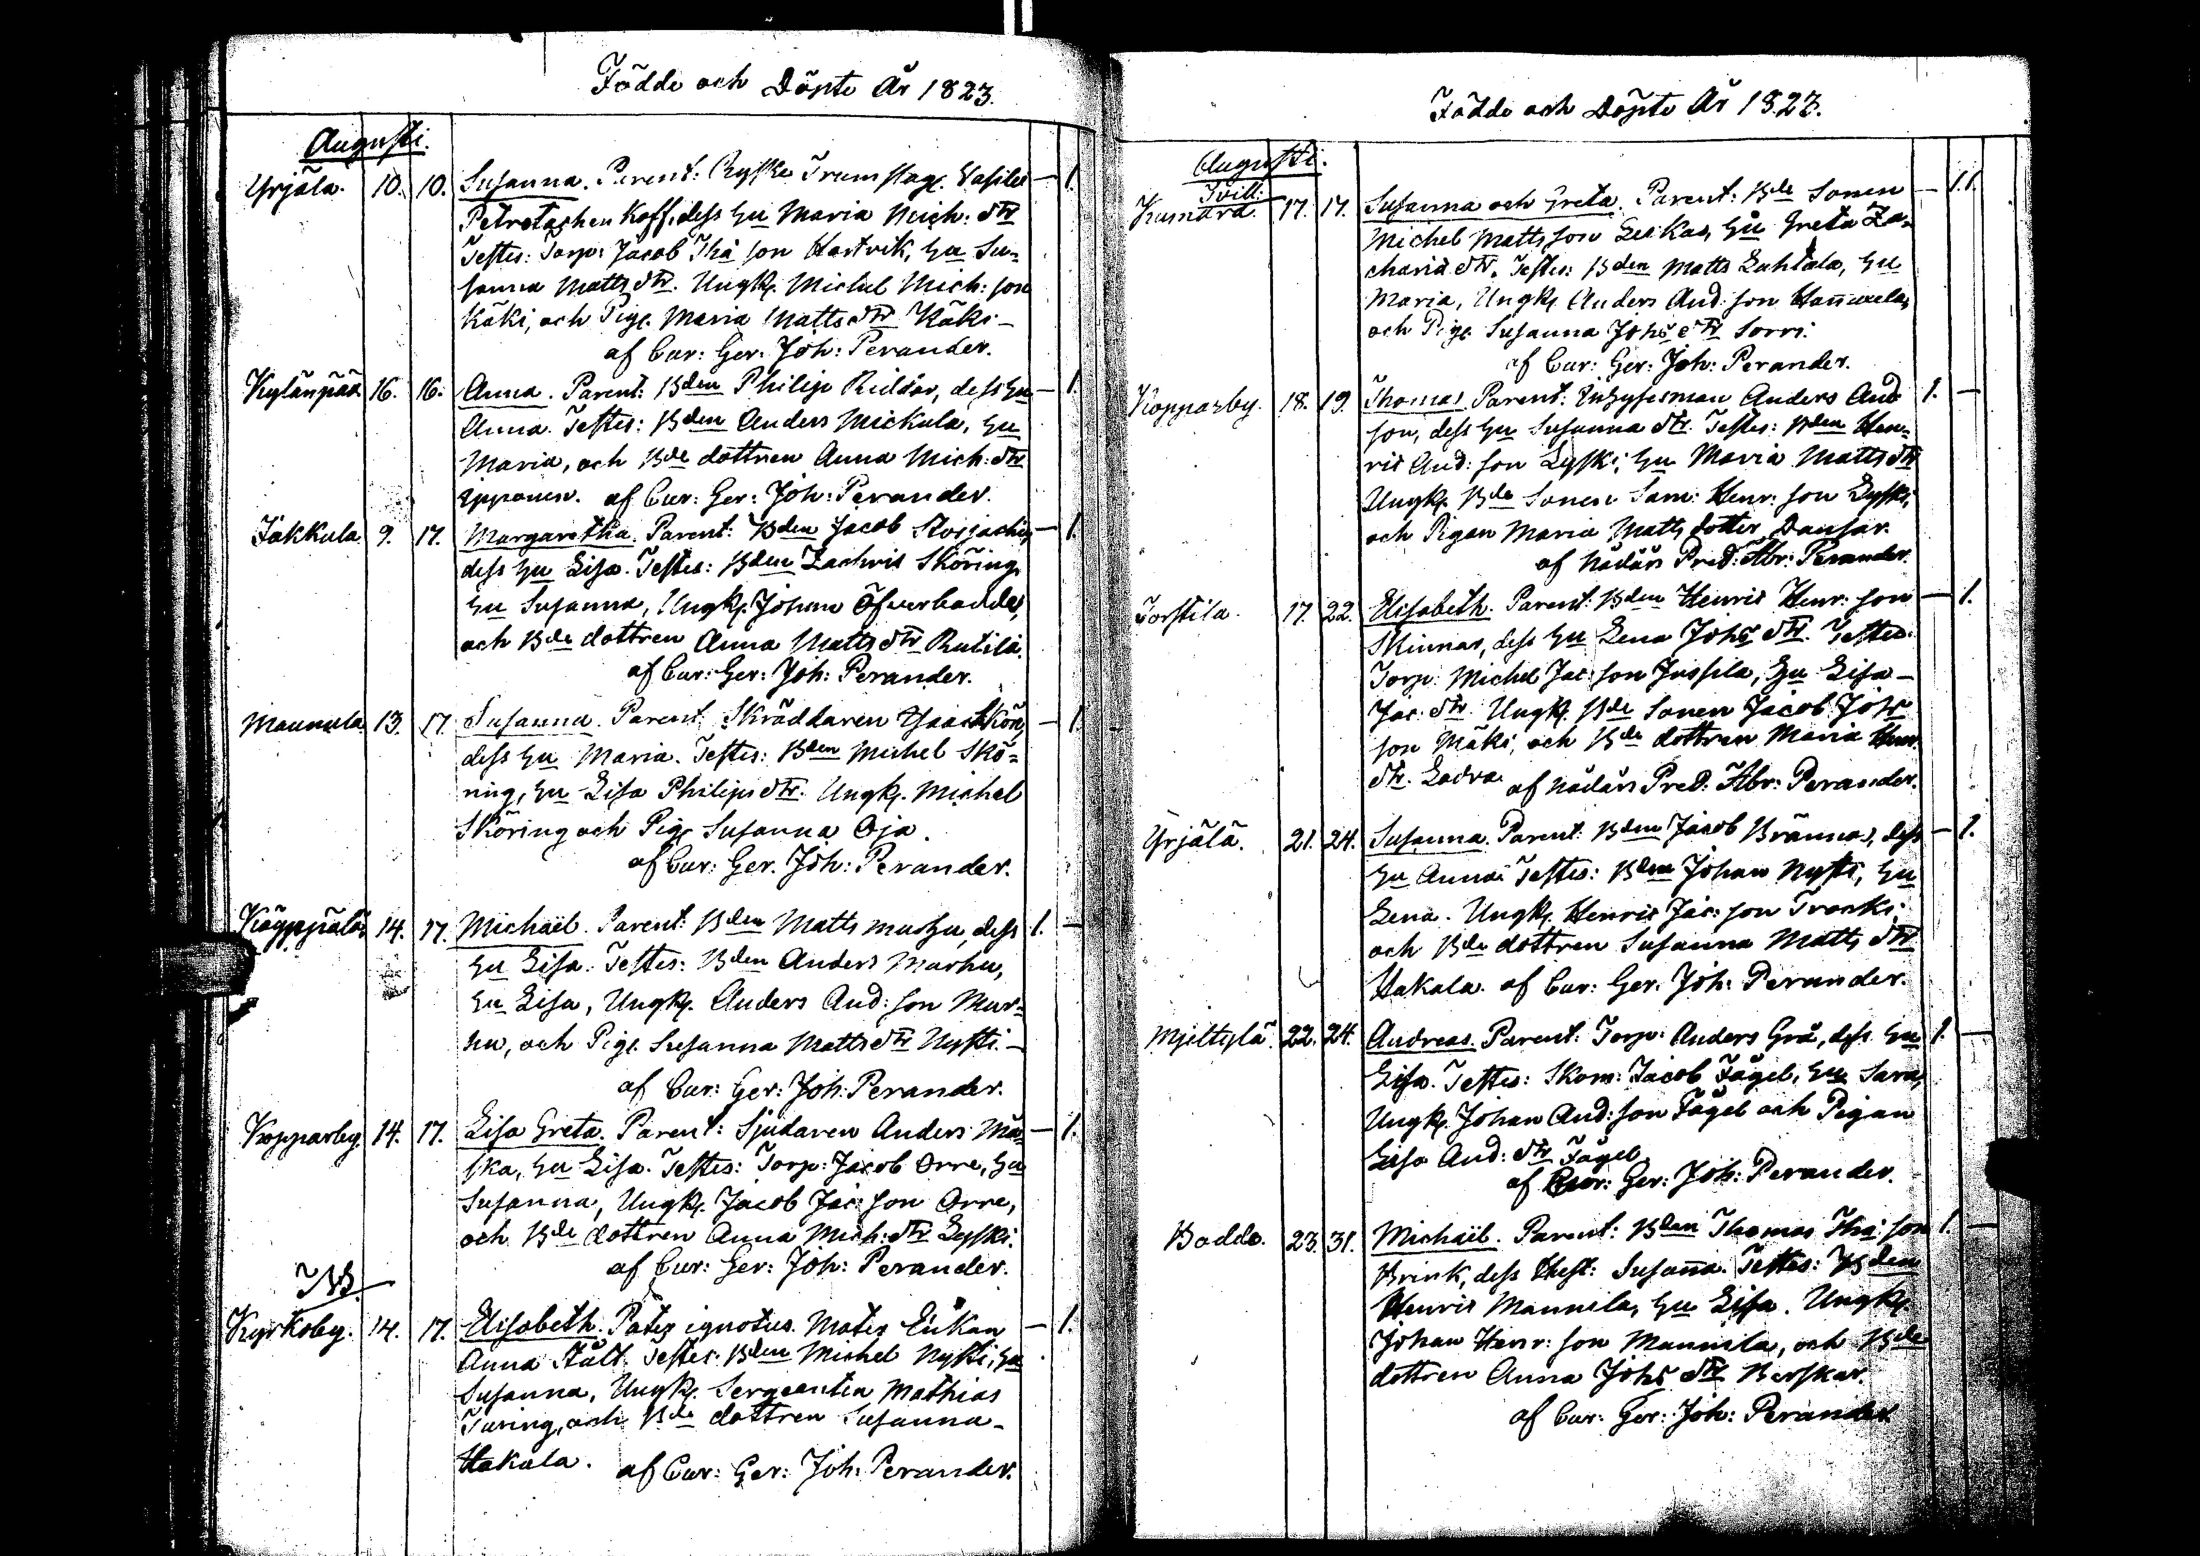 Födde och Döpte År 1823.
Augusti.
Yrjäla. 10. 10. Susanna. Parent: Ryske Trumslag. Vasilei — 1.
Petrotschenkoff, dess Hu Maria Mich: dtr
Testes: Torp: Jacob Thå son Hartvik, Hu Su-
sanna Matts dtr. Ungk. Michel Mich: son
Käki, och Pig. Maria Matts dtr Käki —
af Cur: Ger: Joh: Perander.
Kylänpää 16. 16. Anna. Parent: Bden Philip Riddar, dess Hu — 1.
Anna. Testes: Bden Anders Mickula, Hu
Maria, och Bde dottren Anna Mich: dtr
Ipponen. af Cur: Ger: Joh: Perander.
Jakkula 9. 17. Margaretha. Parent: Bden Jacob — 1.
dess Hu Lisa. Testes: Bden Zachris Sköring,
Hu Susanna, Ungk. Johan Öfverbadda,
och Bde dottren Anna Matts dtr Rutila.
af Cur: Ger: Joh: Perander.
Maunula. 13. 17. Susanna. Parent: Skräddaren Isaac — 1.
dess Hu Maria. Testes: Bden Michel Skö-
ring, Hu Lisa Philips dtr. Ungk. Michel
Sköring och Pig. Susanna Oja.
af Cur: Ger. Joh: Perander.
14. 17. Michaël. Parent: Bden Matts Marhu, dess 1. —
Hu Lisa. Testes: Bden Anders Marhu,
Hu Lisa, Ungk. Anders And: son Mar-
hu, och Pig. Susanna Matts dtr Nysti —
af Cur: Ger: Joh: Perander.
Kopparby. 14. 17. Lisa Greta. Parent: Sjudaren Anders Må- — 1.
ska, Hu Lisa. Testes: Torp: Jacob Orre, Hu
Susanna, Ungk. Jacob Jac: son Orre,
och Bde dottren Anna Mich: dtr Lyski.
af Cur: Ger: Joh: Perander.
NB.
Kyrkoby. 14. 17. Elisabeth. Pater ignotus. Mater Enkan — 1.
Anna Stålt. Testes: Bden Michel Nysti, Hu
Susanna, Ungk. Sergeanten Mathias
Turing, och Bde dottren Susanna —
Hakala. af Cur: Ger: Joh: Perander.
Födde och Döpte År 1823.
Augusti.
Tvill:
17. 17. Susanna och Greta. Parent: Bde Sonen — 11.
Michel Matts son Leskas, Hu Greta Za-
charis dtr. Testes: Bden Matts Lahtala, Hu
Maria, Ungk. Anders And: son Hannuela,
och Pig. Susanna Johs dtr Sorri.
af Cur: Ger: Joh: Perander.
Kopparby. 18. 19. Thomas. Parent: Inhysesman Anders And 1. —
son, dess Hu Susanna dtr. Testes: Bden Hen-
ric And: son Lyski, Hu Maria Matts dtr
Ungk. Bde Sonen Sam: Henr: son Lyski,
och Pigan Maria Matts dotter Dansar.
af Nådårs Pred: Abr: Perander.
Torstila. 17. 22. Elisabeth. Parent: Bden Henric Henr: son — 1.
Skinnar, dess Hu Lena Johs dtr. Testes:
Torp: Michel Jac: son Jussila, Hu Lisa —
Jac: dtr. Ungk. Bde Sonen Jacob Johs
son Mäki, och Bde dottren Maria Henr
dtr. Ladva. af Nådårs Pred: Abr: Perander.
Yrjälä. 21. 24. Susanna. Parent: Bden Jacob Brännas, dess — 1.
Hu Anna. Testes: Bden Johan Nysti, Hu
Lena. Ungk. Henric Jac: son Traski,
och Bde dottren Susanna Matts dtr
Hakala. af Cur: Ger: Joh: Perander.
Mjeltylä. 22. 24. Andreas. Parent: Torp: Anders Grå, dess Hu 1. —
Lisa. Testes: Skom: Jacob Fågel, Hu Sara,
Ungk. Johan And: son Fågel och Pigan
Lisa And: dtr Fågel.
af Cur: Ger: Joh: Perander.
Badde. 23. 31. Michaël. Parent: Bden Thomas Thå son 1. —
Brink, dess Hust: Susanna. Testes: Bden
Henric Mannila, Hu Lisa. Ungk.
Johan Henr: son Mannila, och Bde
dottren Anna Johs dtr Berskar.
af Cur: Ger: Joh: Perander